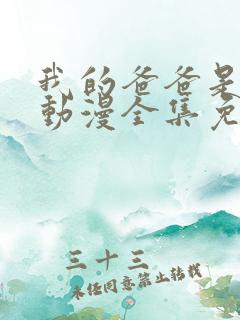 我的爸爸是
動漫全集免
三十三
未經同意禁止轉載